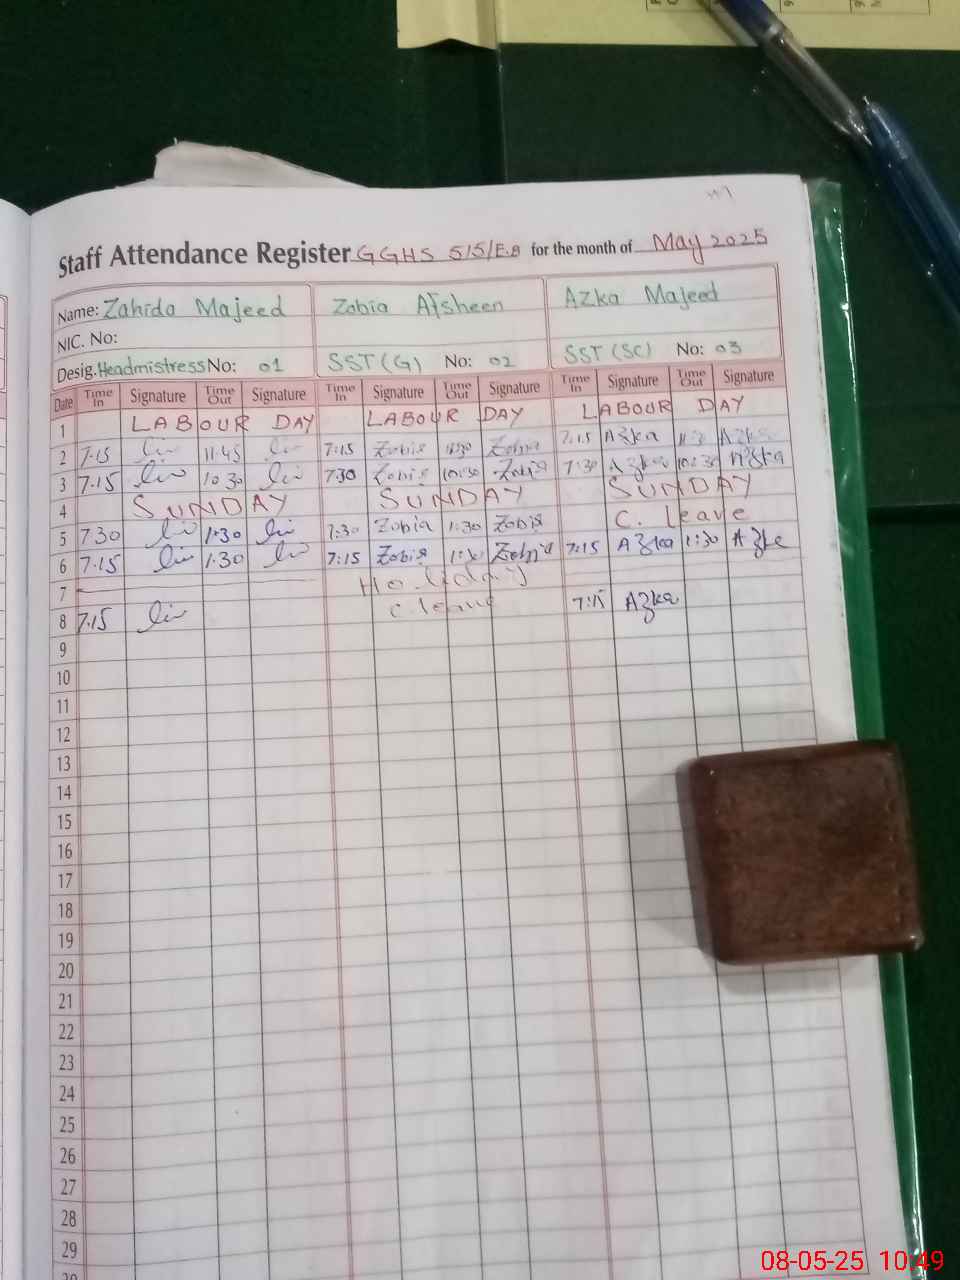 Staff Attendance Register GGHS 5/5/E.B for the month of May 2025
Name: Zahida Majeed Zobia Afsheen Azka Majeed
NIC. No:
Desig. Headmistress No: 01 SST (G) No: 02 SST (SC) No: 03
Date Time In Signature Time Out Signature Time In Signature Time Out Signature Time In Signature Time Out Signature
1 LABOUR DAY LABOUR DAY LABOUR DAY
2 7.15 11.45 7:15 Zobia Zobia 7:15 Azka Azka
3 7.15 10.30 7:30 Zobia 10:30 Zobia 7:30 Azka 10:30 Azka
4 SUNDAY SUNDAY SUNDAY
5 7.30 1.30 7:30 Zobia 1:30 Zobia C. leave
6 7.15 1.30 7:15 Zobia 1:30 Zobia 7:15 Azka 1:30 Azka
7 Holiday
8 7.15 C. leave 7:15 Azka
9
10
11
12
13
14
15
16
17
18
19
20
21
22
23
24
25
26
27
28
29
08-05-25 10:49